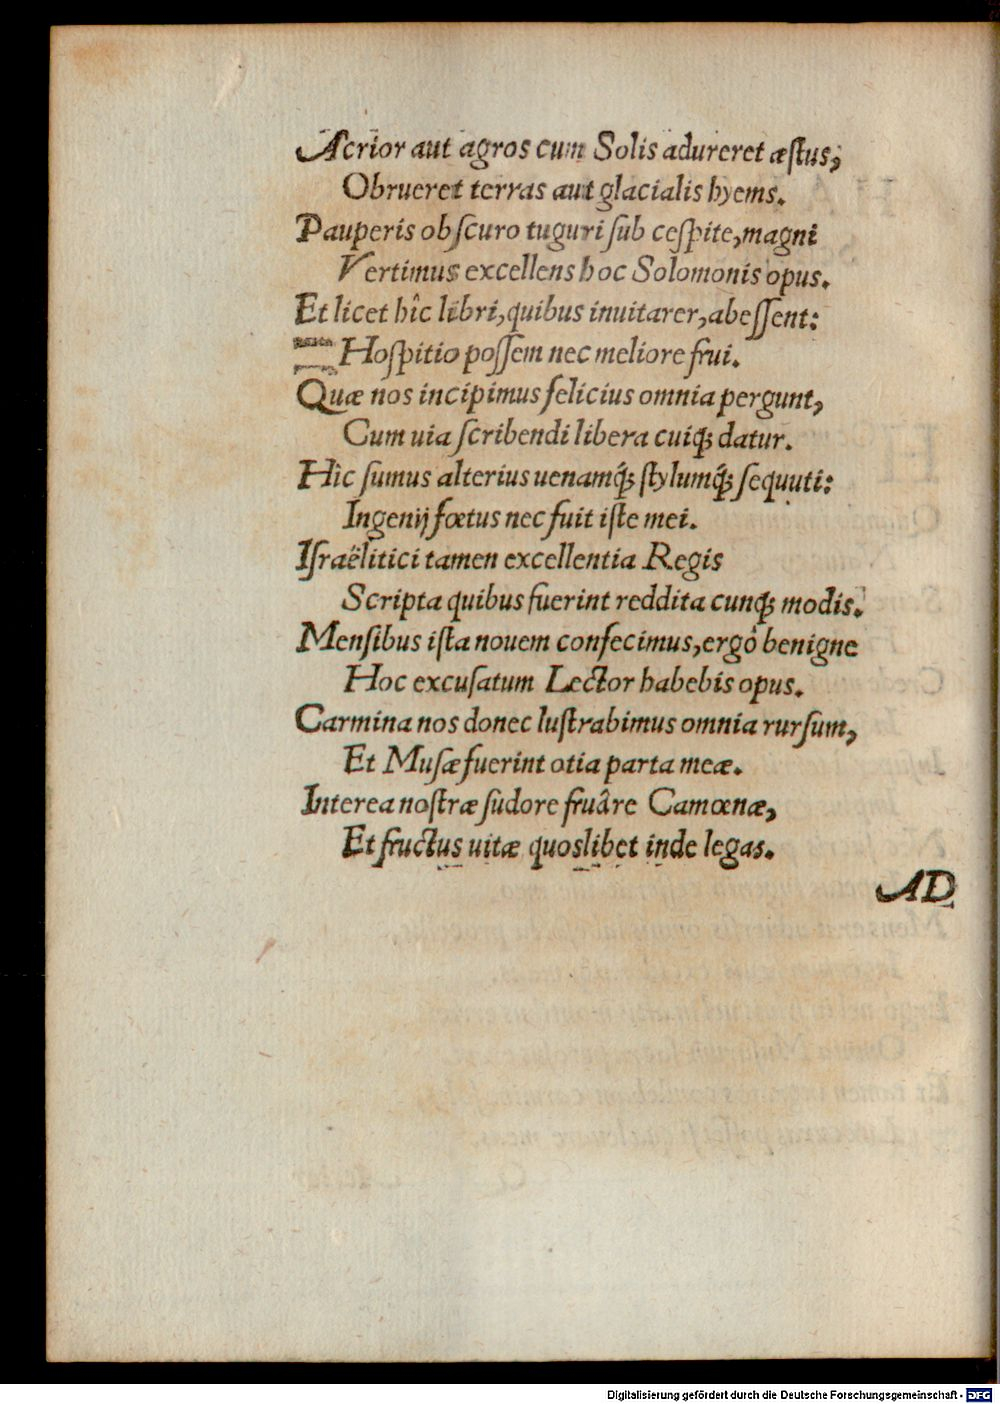 Acrior aut agros cum Solis adureret æſtus,
Obrueret terras aut glacialis hyems.
Pauperis obſcuro tuguri ſub ceſpite, magni
Vertimus excellens hoc Solomonis opus.
Et licet hîc libri, quibus inuitarer, abeſſent:
Hoſpitio poſſem nec meliore frui.
Quæ nos incipimus felicius omnia pergunt,
Cum uia ſcribendi libera cuiq́; datur.
Hîc ſumus alterius uenamq́; ſtylumq́; ſequuti:
Ingenij fœtus nec fuit iſte mei.
Iſraëlitici tamen excellentia Regis
Scripta quibus fuerint reddita cunq́; modis.
Menſibus iſta nouem confecimus, ergò benigne
Hoc excuſatum Lector habebis opus.
Carmina nos donec luſtrabimus omnia rurſum,
Et Muſæ fuerint otia parta meæ.
Interea noſtræ ſudore fruâre Camœnæ,
Et fructus uitæ quoslibet inde legas.
AD
Digitalisierung gefördert durch die Deutsche Forschungsgemeinschaft - DFG